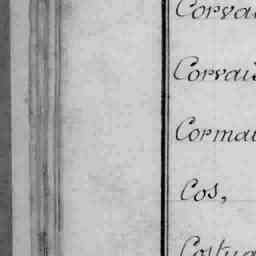 Corva
Corvai
Corma
Cos,
Costu